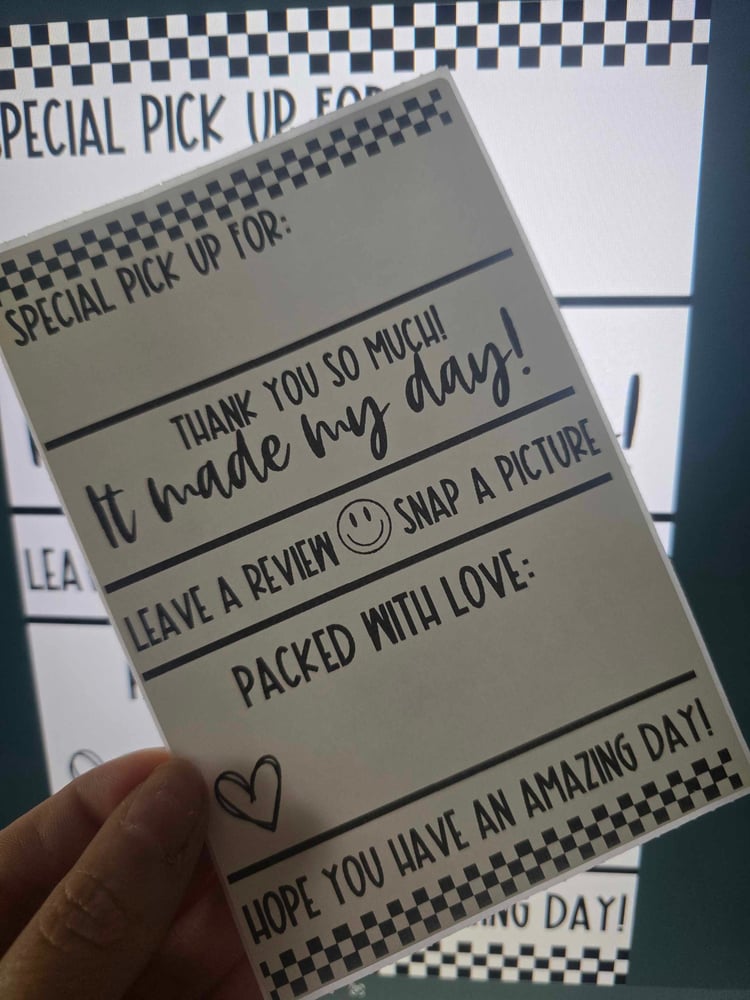 SPECIAL PICK UP FOR
SPECIAL PICK UP FOR:
THANK YOU SO MUCH!
It made my day!
LEAVE A REVIEW SNAP A PICTURE
PACKED WITH LOVE:
HOPE YOU HAVE AN AMAZING DAY!
!
LEA
DAY!